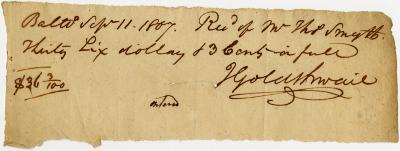 Balto Sepr 11. 1807. Recd of Mr Thos Smyth.
thirty Six dollars & 3 Cents in full
$36 3/100
J Goldthwait
entered